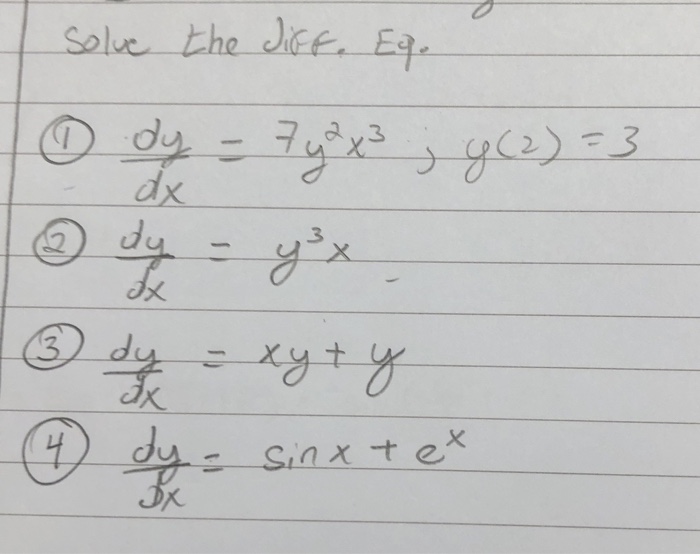 Solve the Diff. Eq.
① dy/dx = 7y²x³ ; y(2) = 3
② dy/dx = y³x
③ dy/dx = xy + y
④ dy/dx = sinx + eˣ